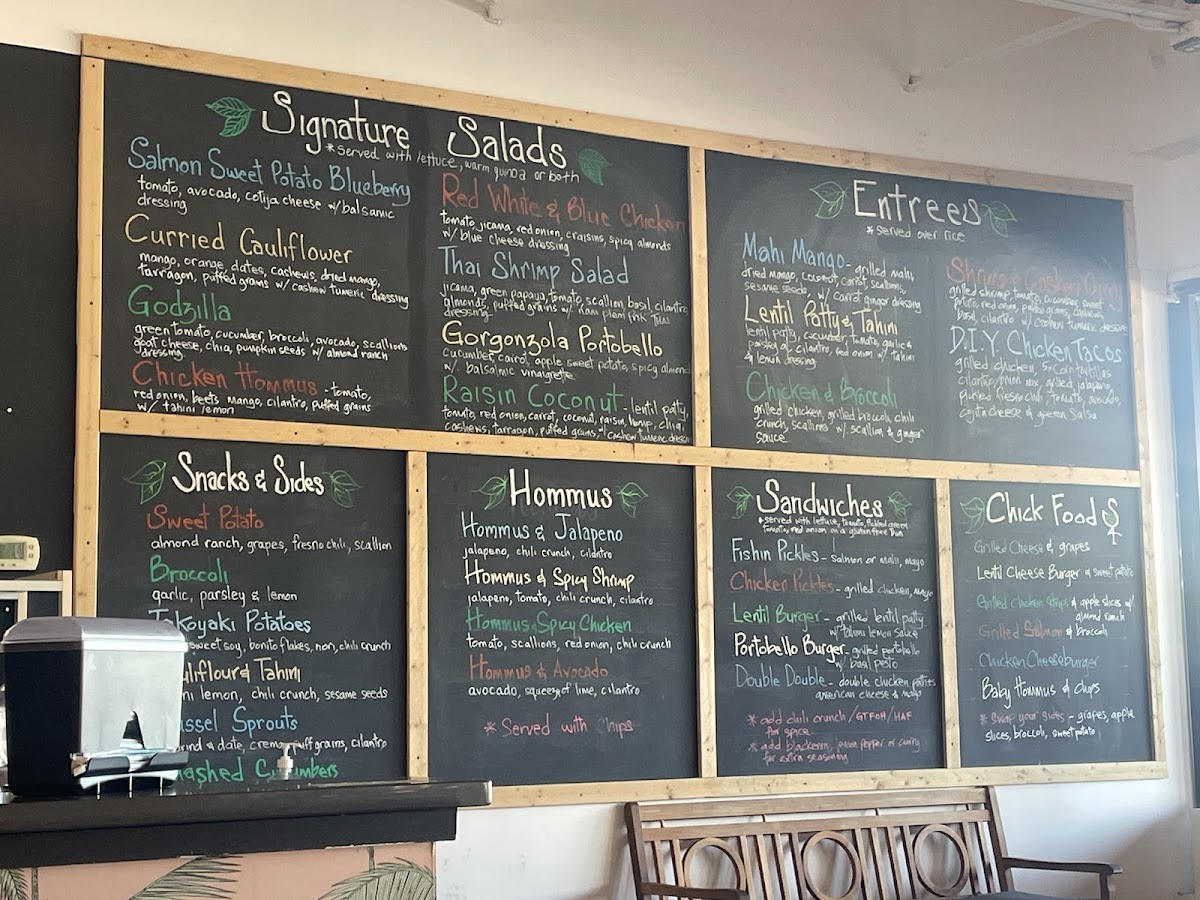 Signature Salads
*Served with lettuce, warm quinoa or both
Salmon Sweet Potato Blueberry
tomato, avocado, cotija cheese w/ balsamic
dressing
Curried Cauliflower
mango, orange, dates, cashews, dried mango,
tarragon, puffed grains w/ cashew tumeric dressing
Godzilla
green tomato, cucumber, broccoli, avocado, scallions
goat cheese, chia, pumpkin seeds w/ almond ranch
dressing
Chicken Hommus - tomato,
red onion, beets, mango, cilantro, puffed grains
w/ tahini lemon
Red White & Blue Chicken
tomato, jicama, red onion, craisins, spicy almonds
w/ blue cheese dressing
Thai Shrimp Salad
jicama, green papaya, tomato, scallion, basil, cilantro
almonds, puffed grains w/ nam plam prik Thai
dressing
Gorgonzola Portobello
cucumber, carrot, apple sweet potato, spicy almond
w/ balsalmic vinaigrette
Raisin Coconut - lentil patty,
tomato, red onion, carrot, coconut, raisin, hemp, chia,
cashews, tarragon, puffed grains, cashew tumeric dress
Entrees
*served over rice
Mahi Mango - grilled mahi,
dried mango, coconut, carrot, scallions,
sesame seeds, w/ carrot ginger dressing
Lentil Patty & Tahini
lentil patty, cucumber, tomato, garlic &
parsley, cilantro, red onion w/ tahini
& lemon dressing
Chicken & Broccoli
grilled chicken, grilled broccoli, chili
crunch, scallions w/ scallion & ginger
sauce
Shrimp & Cashew Curry
grilled shrimp, tomato, cucumber, sweet
potato, red onion, puffed grains, cashews,
basil, cilantro w/ cashew tumeric dressing
D.I.Y Chicken Tacos
grilled chicken, 5 corn tortillas
cilantro/onion mix, grilled jalapeno,
pickled fresno chili, tomato, avocado,
cojita cheese & green salsa
Snacks & Sides
Sweet Potato
almond ranch, grapes, fresno chili, scallion
Broccoli
garlic, parsley & lemon
Takoyaki Potatoes
sweet soy, bonito flakes, nori, chili crunch
uliflour & Tahini
ni lemon, chili crunch, sesame seeds
ussel Sprouts
ond & date, crema, puff grains, cilantro
mashed Cucumbers
Hommus
Hommus & Jalapeno
jalapeno, chili crunch, cilantro
Hommus & Spicy Shrimp
jalapeno, tomato, chili crunch, cilantro
Hommus Spicy Chicken
tomato, scallions, red onion, chili crunch
Hommus & Avocado
avocado, squeeze of lime, cilantro
* Served with Chips
Sandwiches
*served with lettuce, tomato, pickled green
tomato, red onion on a gluten free bun
Fishin Pickles - salmon or mahi, mayo
Chicken Pickles - grilled chicken, mayo
Lentil Burger - grilled lentil patty
w/ tahini lemon sauce
Portobello Burger - grilled portobello
w/ basil pesto
Double Double - double chicken patties
american cheese & mayo
* add chili crunch / GTFOH / HAF
for spice
* add blackening, lemon pepper or curry
for extra seasoning
Chick Food
Grilled Cheese & grapes
Lentil Cheese Burger & sweet potato
Grilled chicken strips & apple slices w/
almond ranch
Grilled Salmon & broccoli
Chicken Cheeseburger
Baby Hommus & chips
* Swap your sides - grapes, apple
slices, broccoli, sweet potato